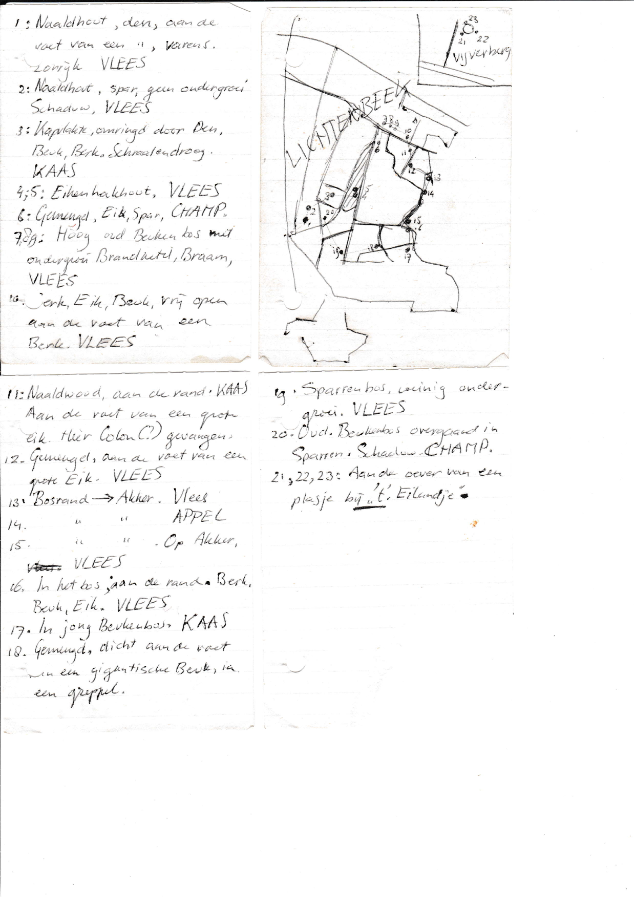 1: Naaldhout, den, aan de
voet van een ", varens.
VLEES
2: Naaldhout, spar, geen ondergroei
Schaduw, VLEES
3: Kapvlakte, omringd door Den,
Beuk, Berk,
KAAS
4,5: Eikenhakhout, VLEES
6: Gemengd, Eik, Spar, CHAMP.
7,8,9: Hoog oud Beukenbos met
ondergroei Braam,
VLEES
10. Eik, Beuk, vrij open
aan de voet van een
Berk. VLEES
LICHTENBEEK
23
21 22
Vijverberg
11: Naaldwoud, aan de rand. KAAS
Aan de voet van een grote
eik. Hier Colon(?) gevangen.
12. Gemengd, aan de voet van een
grote Eik. VLEES
13: Bosrand → Akker. Vlees
14. " " APPEL
15. " " . Op Akker,
VLEES
16. In het bos, aan de rand. Berk,
Beuk, Eik. VLEES
17. In jong Beukenbos. KAAS
18. Gemengd, dicht aan de voet
van een gigantische Beuk, in
een greppel.
19. Sparrenbos, weinig onder-
groei. VLEES
20. Oud Beukenbos overgaand in
Sparren. Schaduw. CHAMP.
21,22,23: Aan de oever van een
plasje bij "'t Eilandje".